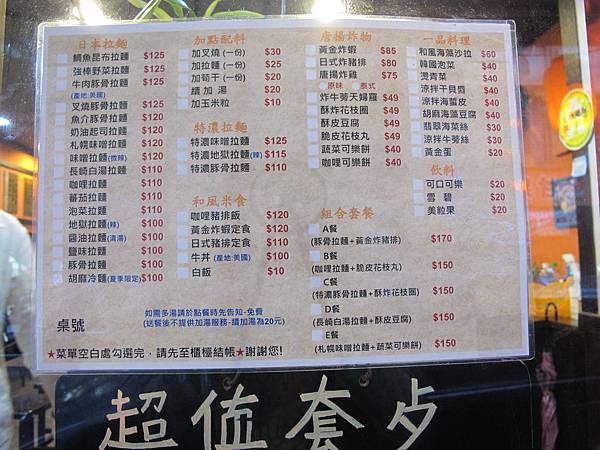 日本拉麵
鯛魚昆布拉麵 $125
強棒野菜拉麵 $125
牛肉豚骨拉麵 $125
(產地:美國)
叉燒豚骨拉麵 $120
魚介豚骨拉麵 $120
奶油起司拉麵 $120
札幌味噌拉麵 $120
味噌拉麵(微辣) $120
長崎白湯拉麵 $110
咖哩拉麵 $110
蕃茄拉麵 $110
泡菜拉麵 $110
地獄拉麵(辣) $100
醬油拉麵(清湯) $100
鹽味拉麵 $100
豚骨拉麵 $100
胡麻冷麵(夏季限定) $100
加點配料
加叉燒(一份) $30
加拉麵(一份) $25
加筍干(一份) $20
續加湯 $20
加玉米粒 $10
特濃拉麵
特濃味噌拉麵 $125
特濃地獄拉麵(辣) $115
特濃豚骨拉麵 $110
和風米食
咖哩豬排飯 $120
黃金炸蝦定食 $120
日式豬排定食 $110
牛丼(產地:美國) $100
白飯 $10
唐揚炸物
黃金炸蝦 $85
日式炸豬排 $80
唐揚炸雞 $75
原味 泰式
炸牛蒡天婦羅 $49
酥炸花枝圈 $49
酥皮豆腐 $49
脆皮花枝丸 $49
蔬菜可樂餅 $40
咖哩可樂餅 $40
組合套餐
A餐
(豚骨拉麵+黃金炸豬排) $170
B餐
(咖哩拉麵+脆皮花枝丸) $150
C餐
(特濃豚骨拉麵+酥炸花枝圈) $150
D餐
(長崎白湯拉麵+酥皮豆腐) $150
E餐
(札幌味噌拉麵+蔬菜可樂餅) $150
一品料理
和風海藻沙拉 $60
韓國泡菜 $40
燙青菜 $40
涼拌干貝唇 $40
涼拌海蜇皮 $40
胡麻海藻豆腐 $40
翡翠海菜絲 $30
涼拌牛蒡絲 $30
黃金蛋 $20
飲料
可口可樂 $20
雪碧 $20
美粒果 $20
如需多湯請於點餐時先告知-免費
(送餐後不提供加湯服務-續加湯為20元)
桌號
★菜單空白處勾選完,請先至櫃檯結帳★謝謝您!
超值套